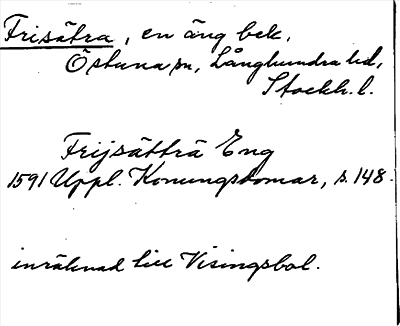 Frisätra, en äng bek.
Östuna sn, Långhundra hd,
Stockh. l.
Frijsätträ Eng
1591 Uppl. Konungsdomar, s. 148.
inräknad till Visingsbol.